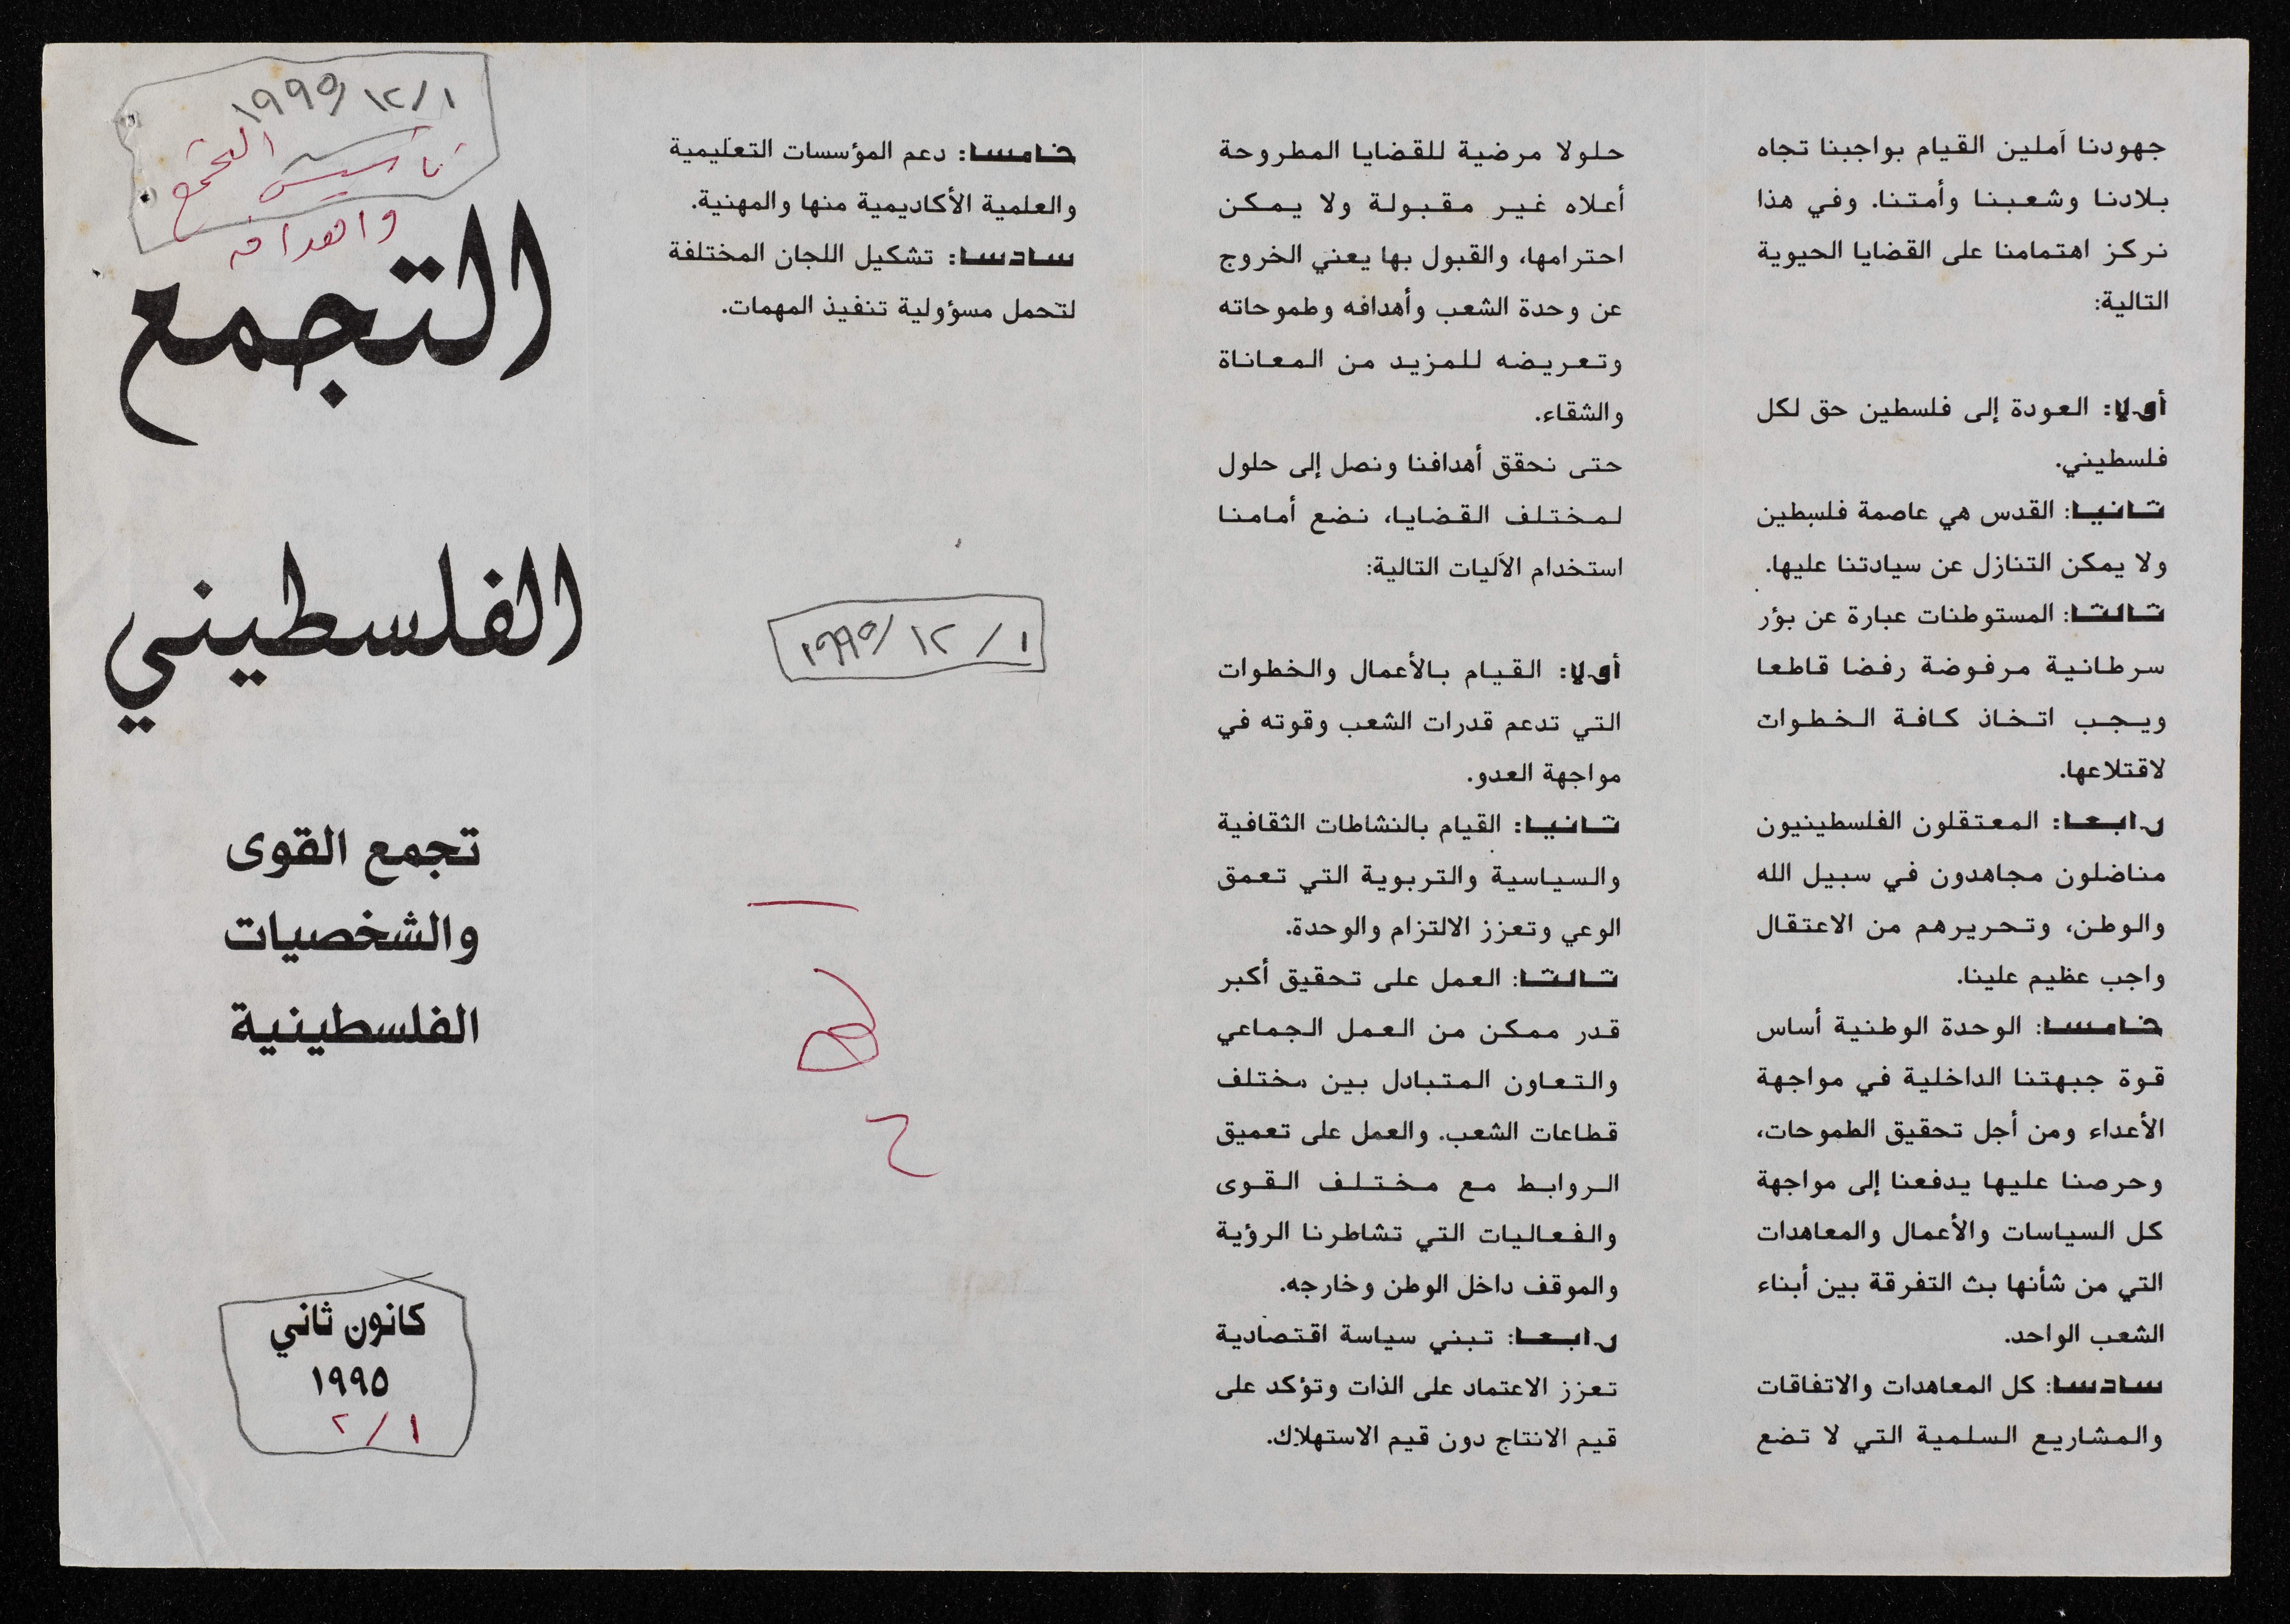 جهودنا آملين القيام بواجبنا تجاه
بلادنا وشعبنا وأمتنا. وفي هذا
نركز اهتمامنا على القضايا الحيوية
التالية:
أولا: العودة إلى فلسطين حق لكل
فلسطيني.
ثانيا: القدس هي عاصمة فلسطين
ولا يمكن التنازل عن سيادتنا عليها.
ثالثا: المستوطنات عبارة عن بؤر
سرطانية مرفوضة رفضا قاطعا
ويجب اتخاذ كافة الخطوات
لاقتلاعها.
رابعا: المعتقلون الفلسطينيون
مناضلون مجاهدون في سبيل الله
والوطن، وتحريرهم من الاعتقال
واجب عظيم علينا.
خامسا: الوحدة الوطنية أساس
قوة جبهتنا الداخلية في مواجهة
الأعداء ومن أجل تحقيق الطموحات،
وحرصنا عليها يدفعنا إلى مواجهة
كل السياسات والأعمال والمعاهدات
التي من شأنها بث التفرقة بين أبناء
الشعب الواحد.
سادسا: كل المعاهدات والاتفاقات
والمشاريع السلمية التي لا تضع
حلولا مرضية للقضايا المطروحة
أعلاه غير مقبولة ولا يمكن
احترامها، والقبول بها يعني الخروج
عن وحدة الشعب وأهدافه وطموحاته
وتعريضه للمزيد من المعاناة
والشقاء.
حتى نحقق أهدافنا ونصل إلى حلول
لمختلف القضايا، نضع أمامنا
استخدام الآليات التالية:
أولا: القيام بالأعمال والخطوات
التي تدعم قدرات الشعب وقوته في
مواجهة العدو.
ثانيا: القيام بالنشاطات الثقافية
والسياسية والتربوية التي تعمق
الوعي وتعزز الالتزام والوحدة.
ثالثا: العمل على تحقيق أكبر
قدر ممكن من العمل الجماعي
والتعاون المتبادل بين مختلف
قطاعات الشعب. والعمل على تعميق
الروابط مع مختلف القوى
والفعاليات التي تشاطرنا الرؤية
والموقف داخل الوطن وخارجه.
رابعا: تبني سياسة اقتصادية
تعزز الاعتماد على الذات وتؤكد على
قيم الانتاج دون قيم الاستهلاك.
خامسا: دعم المؤسسات التعليمية
والعلمية الأكاديمية منها والمهنية.
سادسا: تشكيل اللجان المختلفة
لتحمل مسؤولية تنفيذ المهمات.
١ / ١٢ / ١٩٩٥
١ / ١٢ / ١٩٩٥
تأسيس التجمع
واهدافه
التجمع
الفلسطيني
تجمع القوى
والشخصيات
الفلسطينية
كانون ثاني
١٩٩٥
١ / ٢